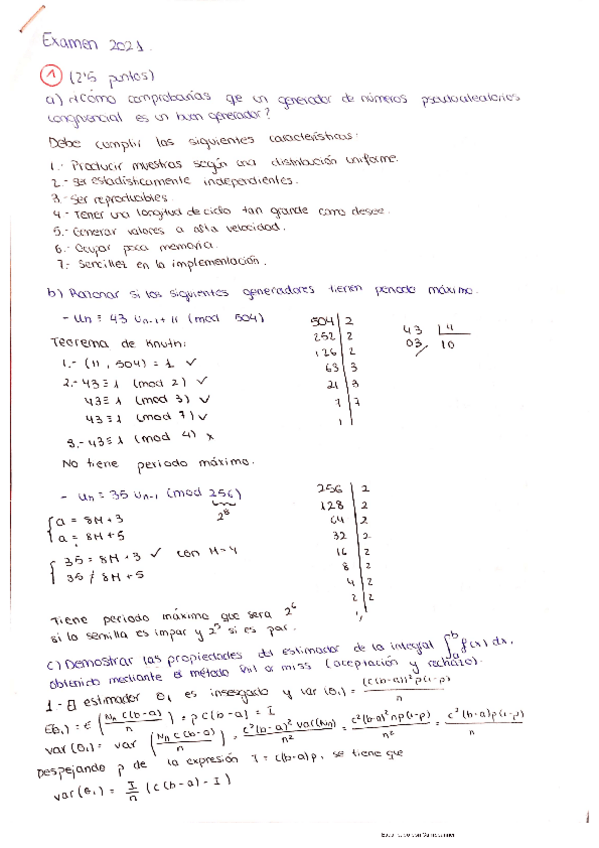 Examen 2021.
1 (2'5 puntos)
a) ¿Cómo comprobarías que un generador de números pseudoaleatorios
congruencial es un buen generador?
Debe cumplir las siguientes características:
1.- Producir muestras según una distribución uniforme.
2.- Ser estadísticamente independientes.
3.- Ser reproducibles.
4.- Tener una longitud de ciclo tan grande como desee.
5.- Generar valores a alta velocidad.
6.- Ocupar poca memoria.
7.- Sencillez en la implementación.
b) Razonar si los siguientes generadores tienen periodo máximo.
- Un = 43 Un-1 + 11 (mod 504)
Teorema de Knuth:
1.- (11, 504) = 1 ✓
2.- 43 ≡ 1 (mod 2) ✓
43 ≡ 1 (mod 3) ✓
43 ≡ 1 (mod 7) ✓
3.- 43 ≡ 1 (mod 4) x
No tiene periodo máximo.
504 | 2
252 | 2
126 | 2
63 | 3
21 | 3
7 | 7
1
43 | 4
03 10
- Un = 35 Un-1 (mod 256)
2^8
a = 8M + 3
a = 8M + 5
35 = 8M + 3 ✓ con M=4
35 ≠ 8M + 5
256 | 2
128 | 2
64 | 2
32 | 2
16 | 2
8 | 2
4 | 2
2 | 2
1
Tiene periodo máximo que sera 2^6
si la semilla es impar y 2^5 si es par.
c) Demostrar las propiedades del estimador de la integral ∫_a^b f(x) dx,
obtenido mediante el método hit or miss (aceptación y rechazo).
1- El estimador θ1 es insesgado y var (θ1) = (c(b-a))² p(1-p) / n
E(θ1) = E (Nn c(b-a) / n) = p c(b-a) = I
var (θ1) = var (Nn c(b-a) / n) = c²(b-a)² var(Nn) / n² = c²(b-a)² n p(1-p) / n² = c²(b-a) p(1-p) / n
Despejando p de la expresión I = c(b-a)p, se tiene que
var (θ1) = I/n (c(b-a) - I)